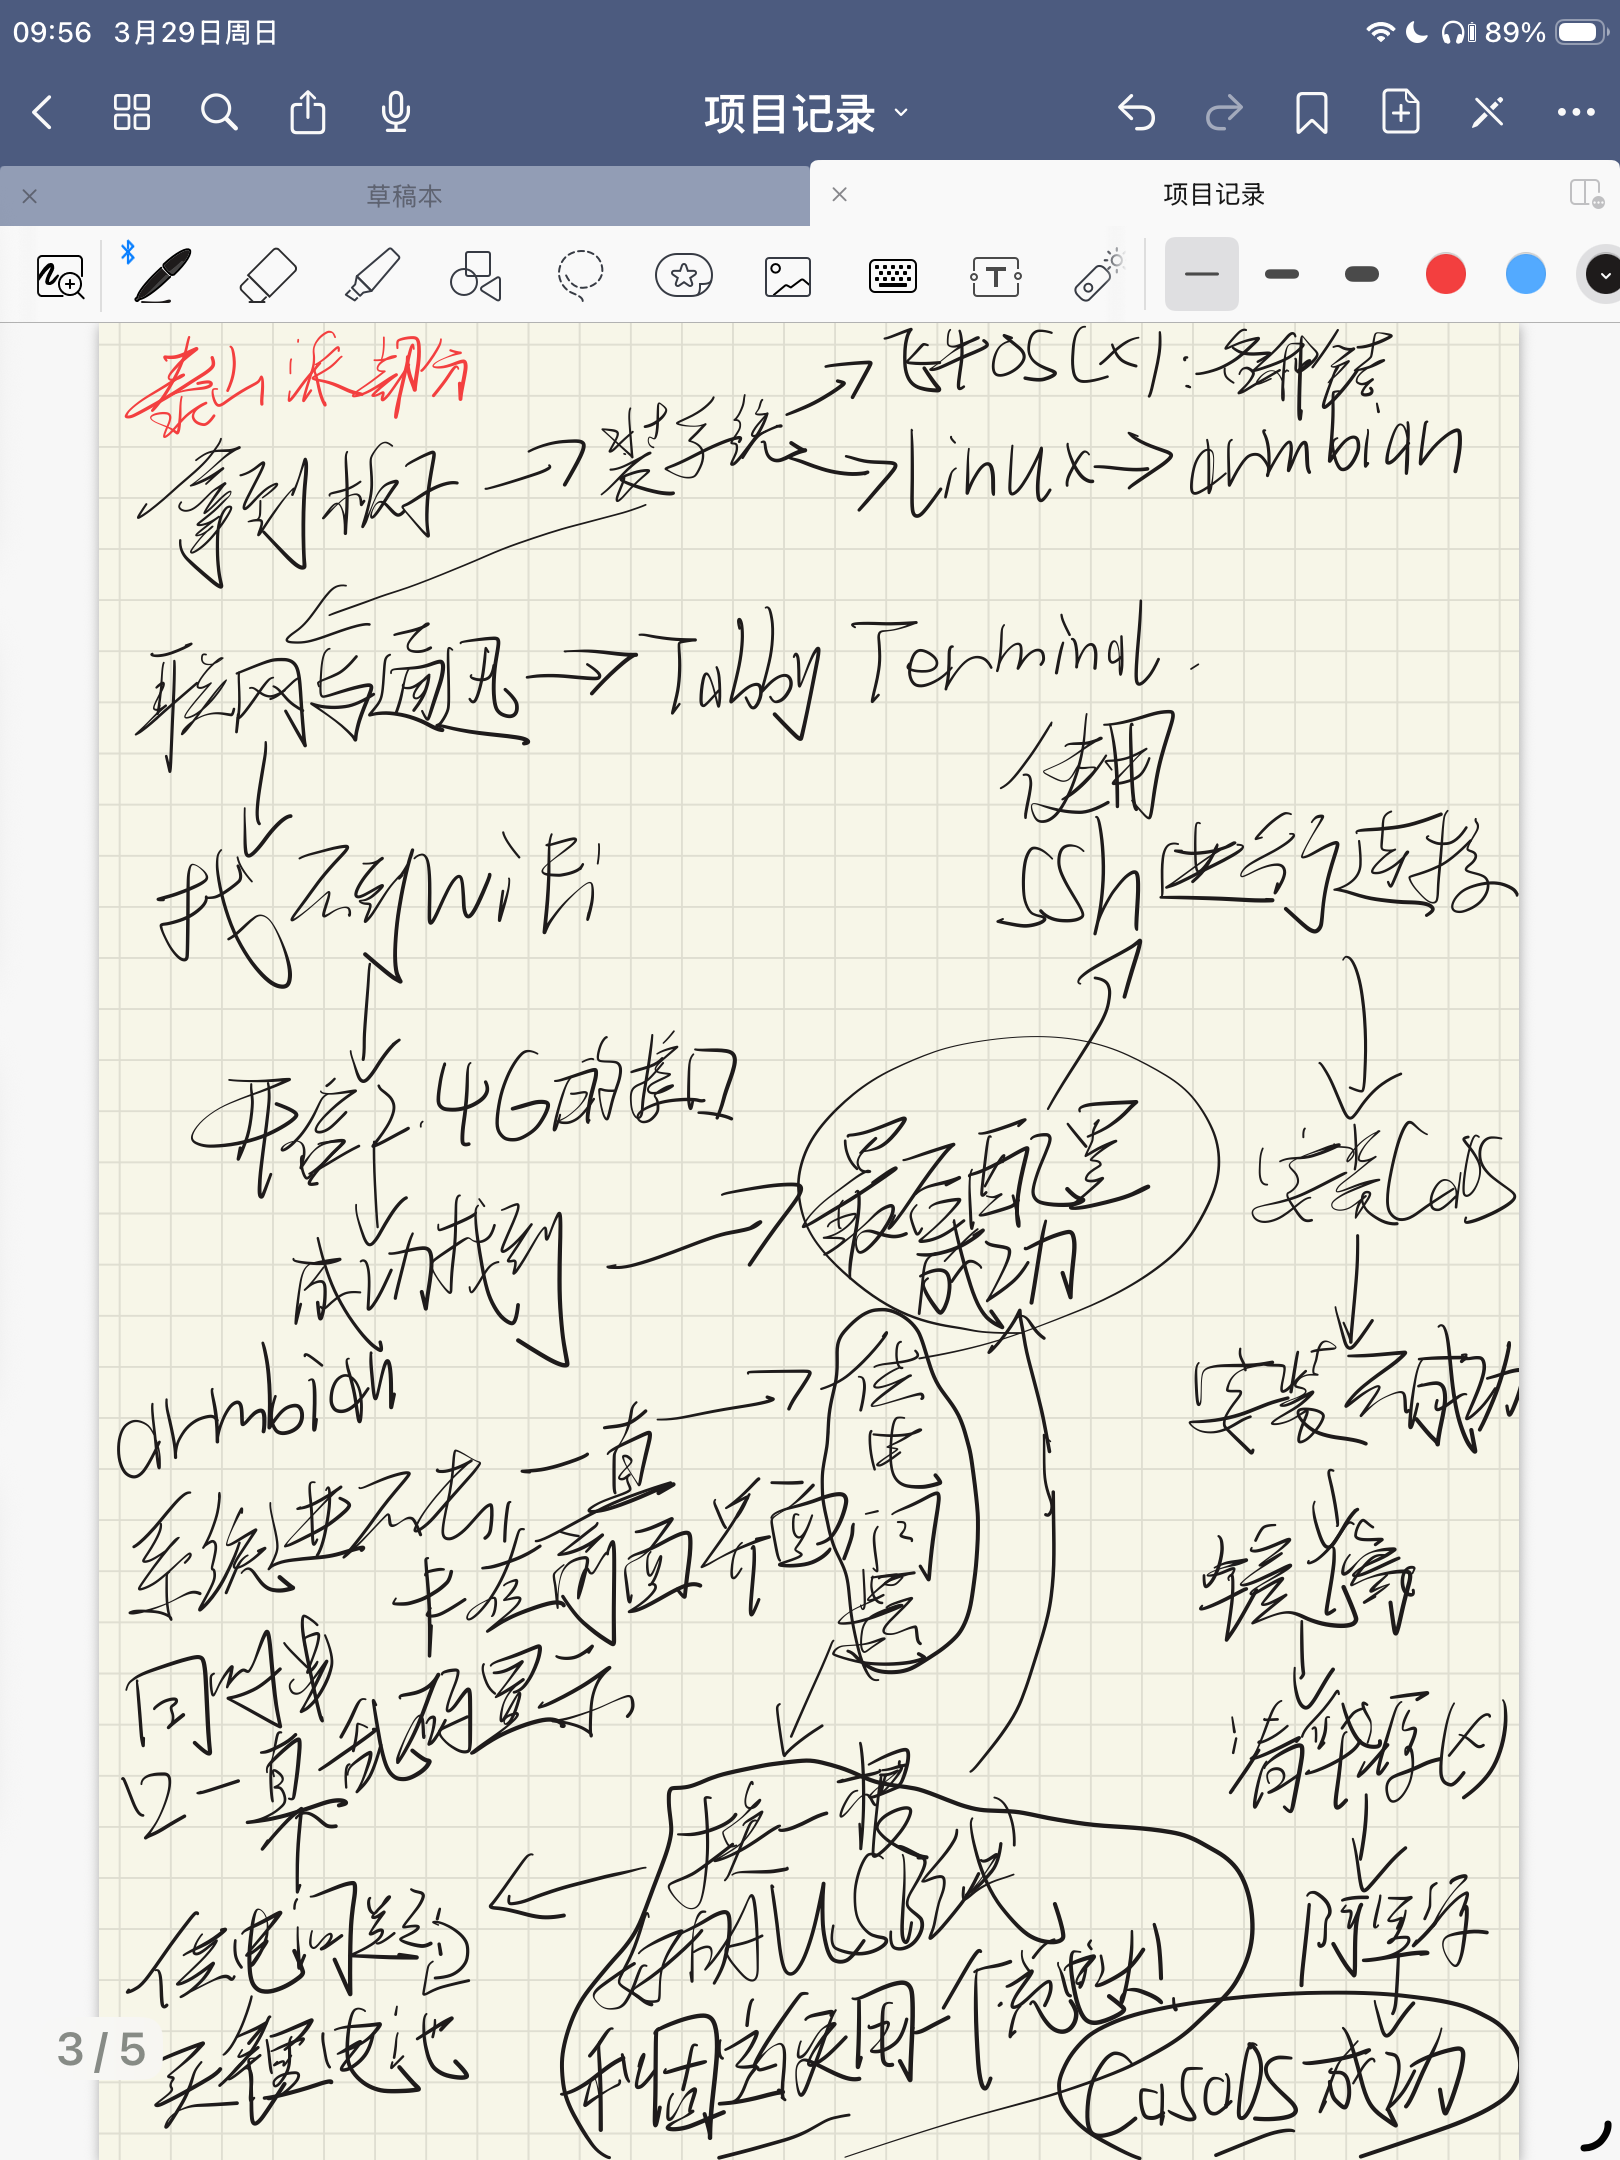 09:56 3月29日周日
89%
项目记录
草稿本
项目记录
泰山派部分
飞牛OS(x):各种错
拿到板子 → 装系统
Linux → armbian
联网与通讯 → Tabby Terminal.
使用
ssh进行连接
找不到wifi
开启2.4G的接口
最后配置
成功
安装Cas
成功找到
armbian
供
电
问
题
安装不成功
系统进不去,一直
卡在前面界面
镜像
同时串
口一直乱码显示
清华源(x)
换一根
好的USB线
阿里云
供电问题
买锂电池
和固定使用一个充电头!
CasaOS成功
3/5